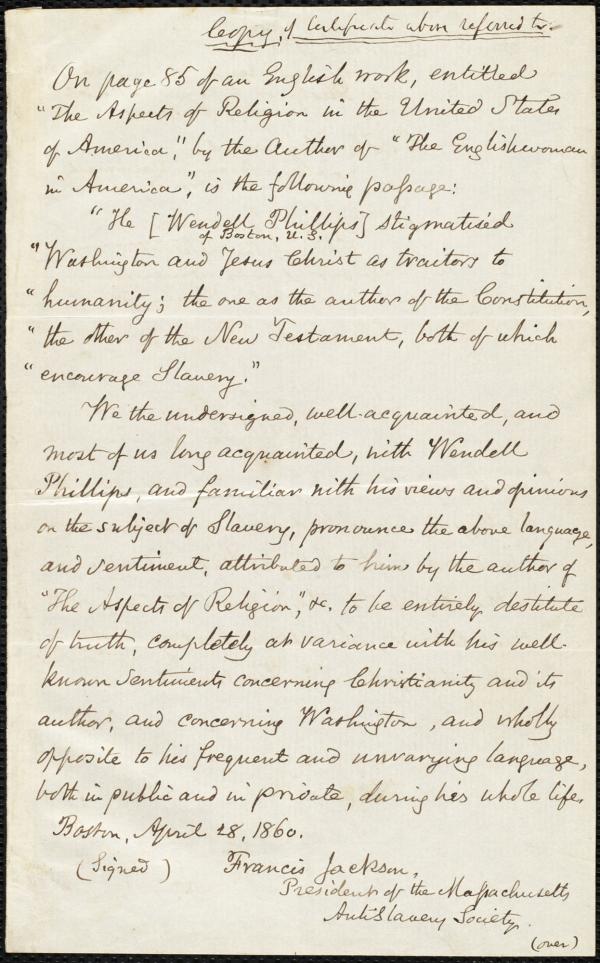 Copy, of Certificate above referred to.
On page 85 of an English work, entitled
"The Aspects of Religion in the United States
of America", by the Author of "The Englishwoman
in America", is the following passage:
"He [Wendell Phillips] stigmatised
of Boston, U.S.
"Washington and Jesus Christ as traitors to
"humanity; the one as the author of the Constitution,
"the other of the New Testament, both of which
"encourage Slavery."
We the undersigned, well-acquainted, and
most of us long acquainted, with Wendell
Phillips, and familiar with his views and opinions
on the subject of Slavery, pronounce the above language,
and sentiment, attributed to him by the author of
"The Aspects of Religion", &c. to be entirely destitute
of truth, completely at variance with his well-
known sentiments concerning Christianity and its
author, and concerning Washington, and wholly
opposite to his frequent and unvarying language,
both in public and in private, during his whole life.
Boston, April 28, 1860.
(Signed) Francis Jackson,
President of the Massachusetts
AntiSlavery Society.
(over)